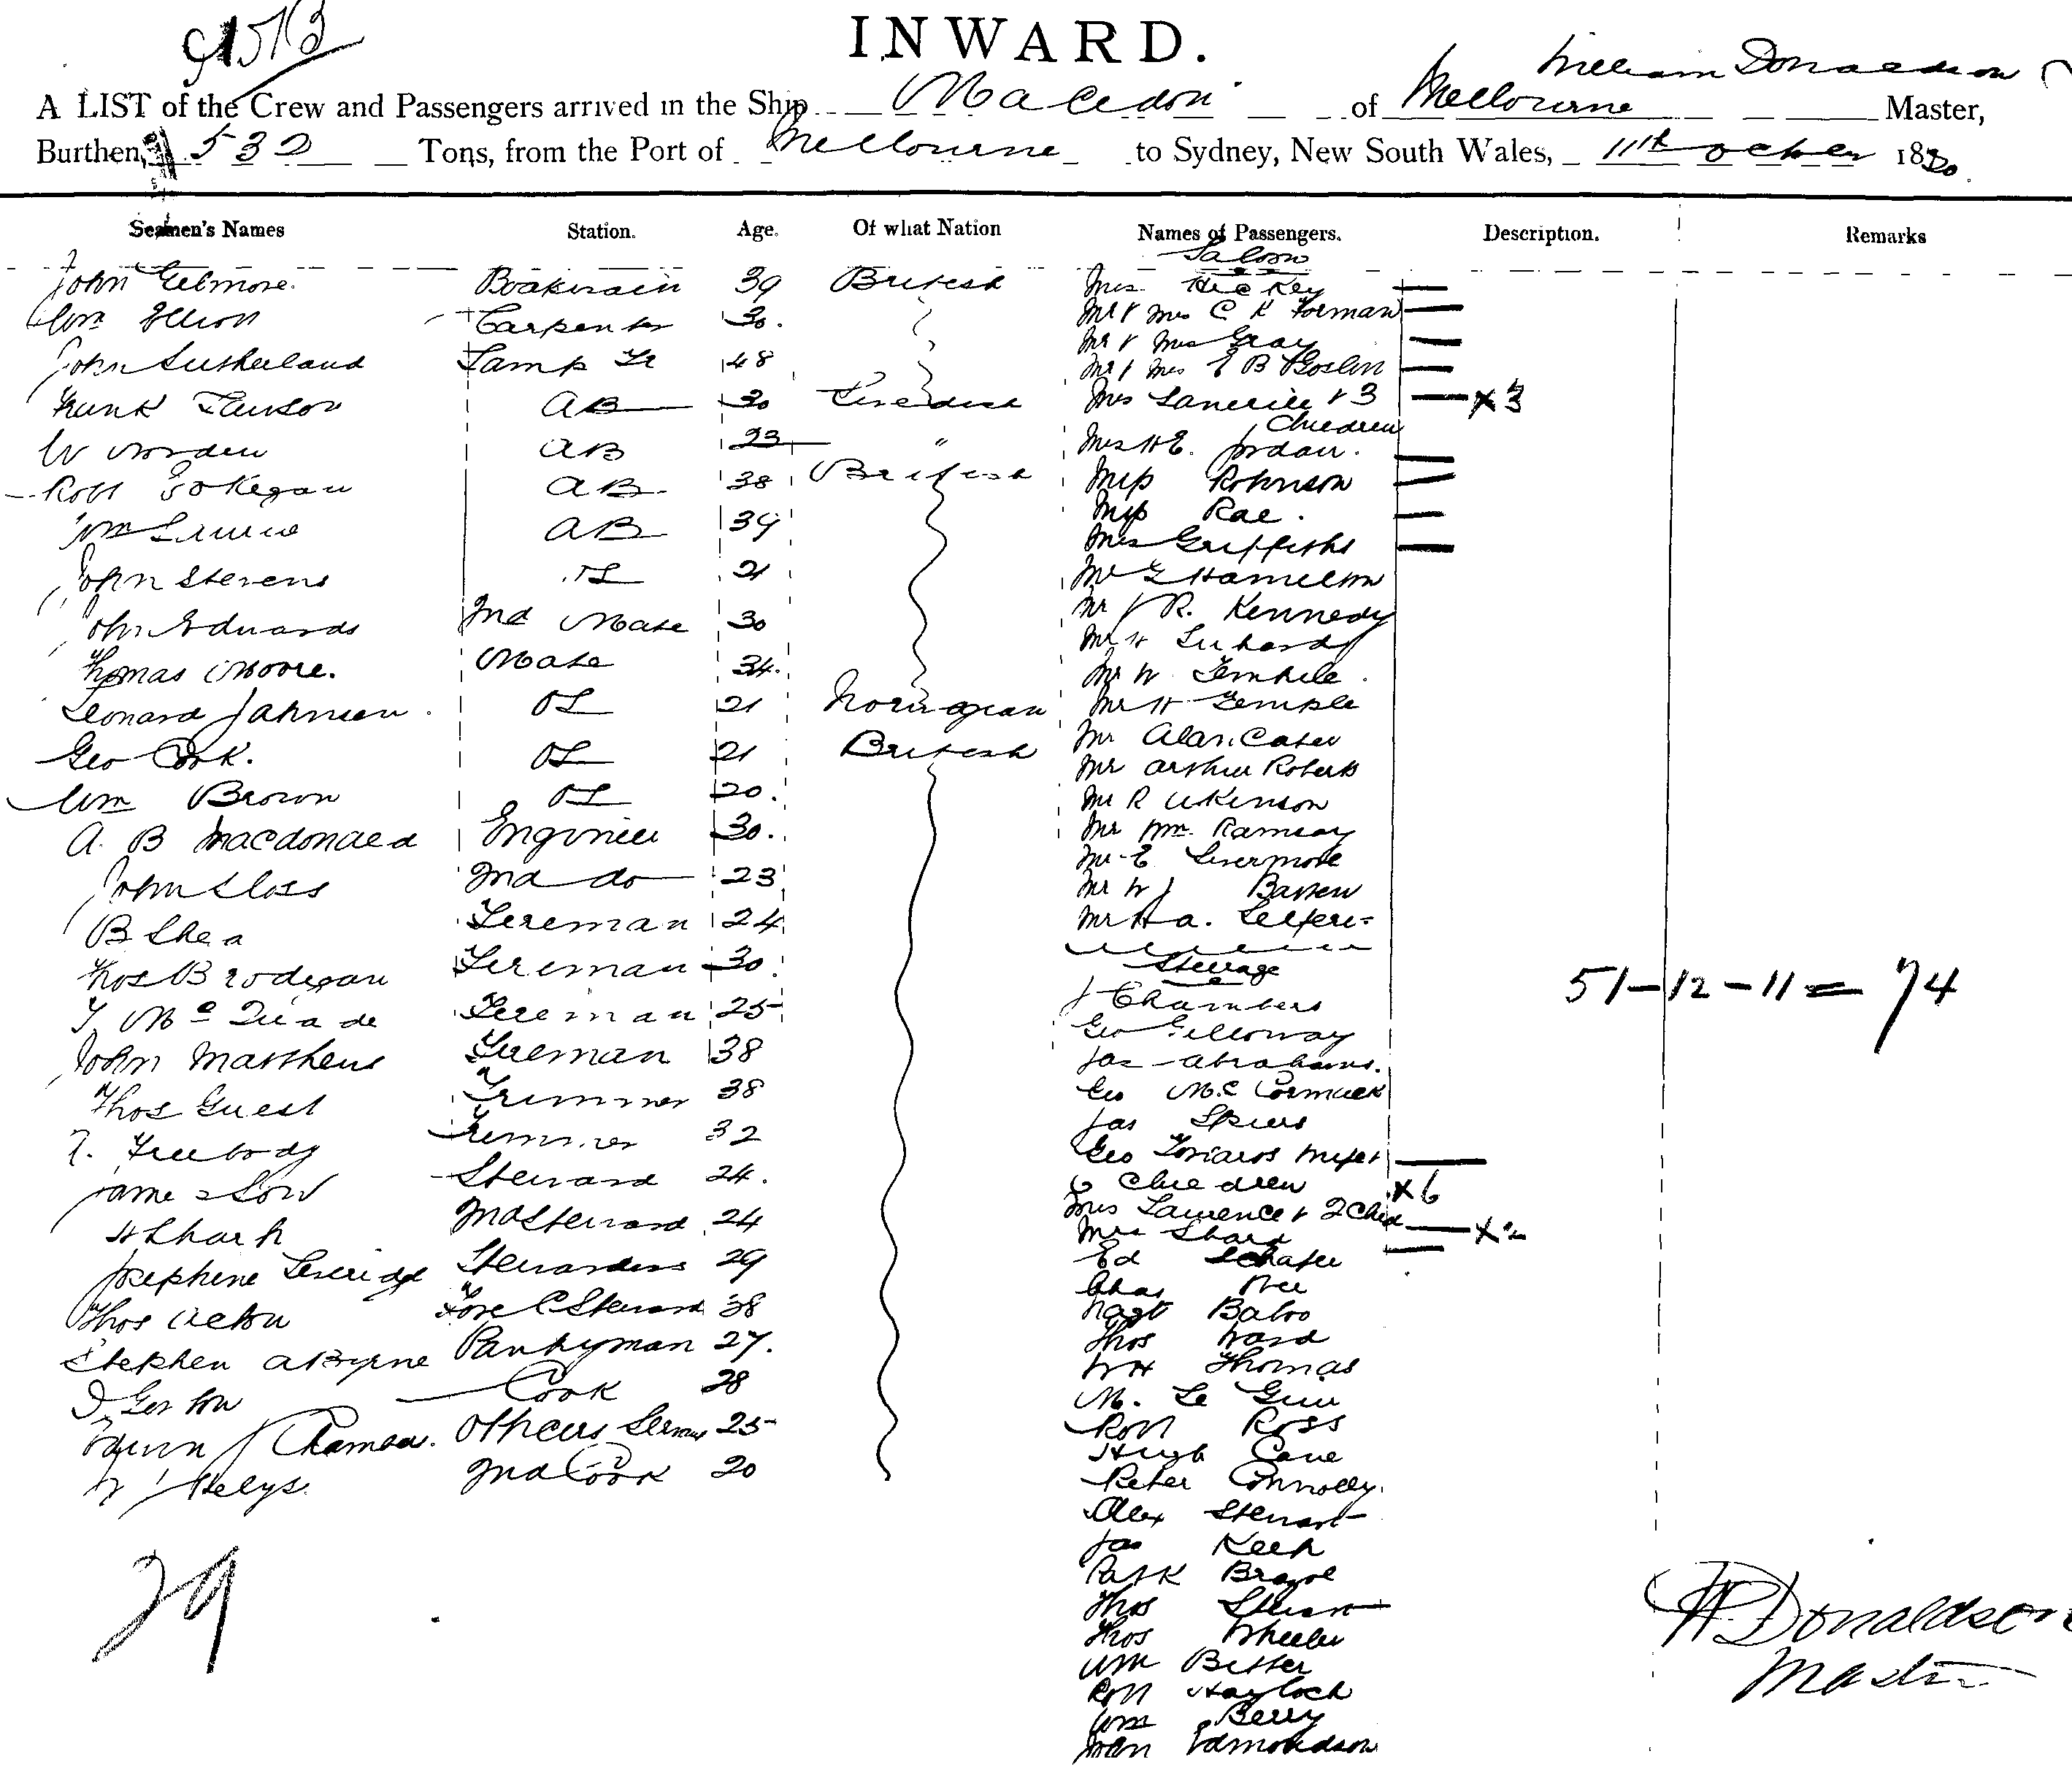 INWARD.
William Donaldson
A LIST of the Crew and Passengers arrived in the Ship Macedon of Melbourne Master,
Burthen, 532 Tons, from the Port of Melbourne to Sydney, New South Wales, 11th 18
Seamen's Names Station. Age. Of what Nation Names of Passengers. Description. Remarks
Saloon
John Gilmore. 39 British Mrs. Hickey
Wm Carpenter 30. Mr & Mrs C K Forman
Mr & Mrs Gray
John Sutherland Lamp Tr 48 Mr & Mrs E B Goslin
AB 30 Swedish Mrs & 3 x 3
Children
W AB 23 " Mrs H E. Jordan.
Robt AB. 38 British Miss Robinson
Miss Rae.
Wm AB 39 Mrs Griffiths
John Stevens OS 21 Mr G Hamilton
Mr J R. Kennedy
John Edwards 2nd Mate 30 Mr H
Thomas Moore. Mate 34. Mr W
Leonard OS 21 Norwegian Mr H Temple
Geo Cook. OS 21 British Mr Alan Cater
Mr Arthur Roberts
Wm Brown OS 20. Mr R
A. B Macdonald Engineer 30. Mr Wm. Ramsay
Mr E Livermore
John Sloss 2nd do 23 Mr W J
B Shea Fireman 24 Mr H A.
Thos Brodigan Fireman 30. Steerage
T. McQuade Fireman 25 J Chambers
Geo Gilloway
John Matthews Fireman 38 Jas Abrahams.
Thos Guest Trimmer 38 Geo McCormack
Jas Spiers
T. Freebody Trimmer 32 Geo wife &
James Low Steward 24. 6 Children x 6
H Sharp 2nd Steward 24 Mrs Lawrence & 2 Chld x 2
Mrs
Josephine Stewardess 29 Ed
Chas
Thos Acton Fore C Steward 38
Stephen A Byrne Pantryman 27. Thos Ward
W H Thomas
Cook 28 M. Le
Edwin J Officers Servnt 25 Robt Ross
Hugh Cane
2nd Cook 20 Peter Connolly.
Alex Stewart
Jas Keep
Patk
Thos Stewart
Thos Wheeler
Wm Better
Robt Hayloch
Wm Berry
John Edmondson
51 – 12 – 11 = 74
29
W Donaldson
Master